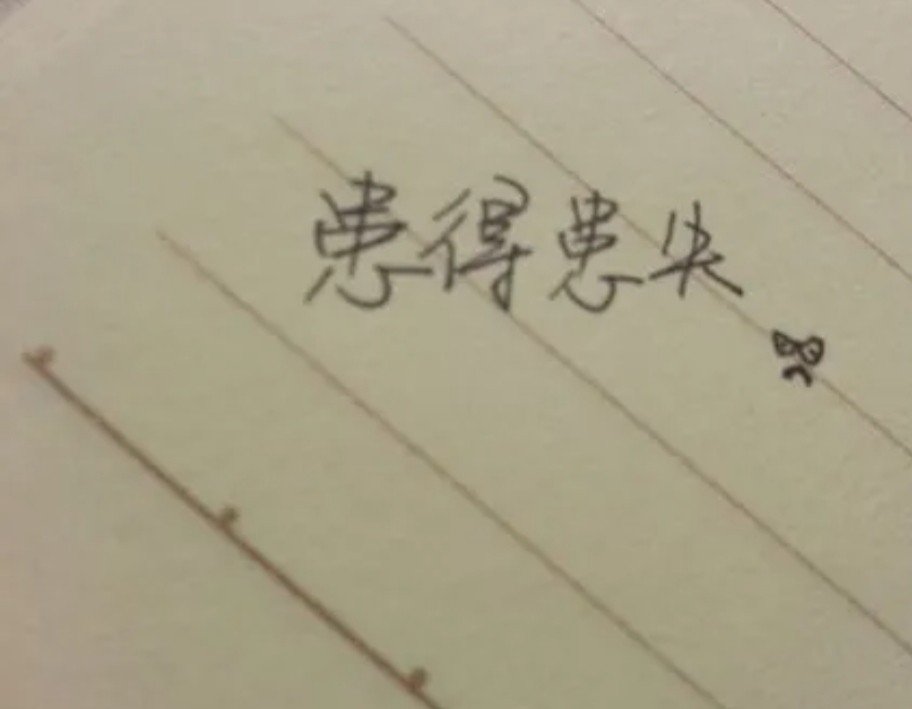 患得患失